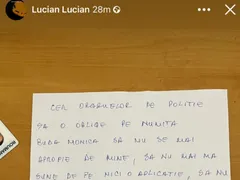 Lucian Lucian 28m
CER ORGANELOR DE POLITIE
SA O OBLIGE PE MUNITA
BUDA MONICA SA NU SE MAI
APROPIE DE MINE, SA NU MAI MA
SUNE DE PE NICI O APLICATIE, SA NU